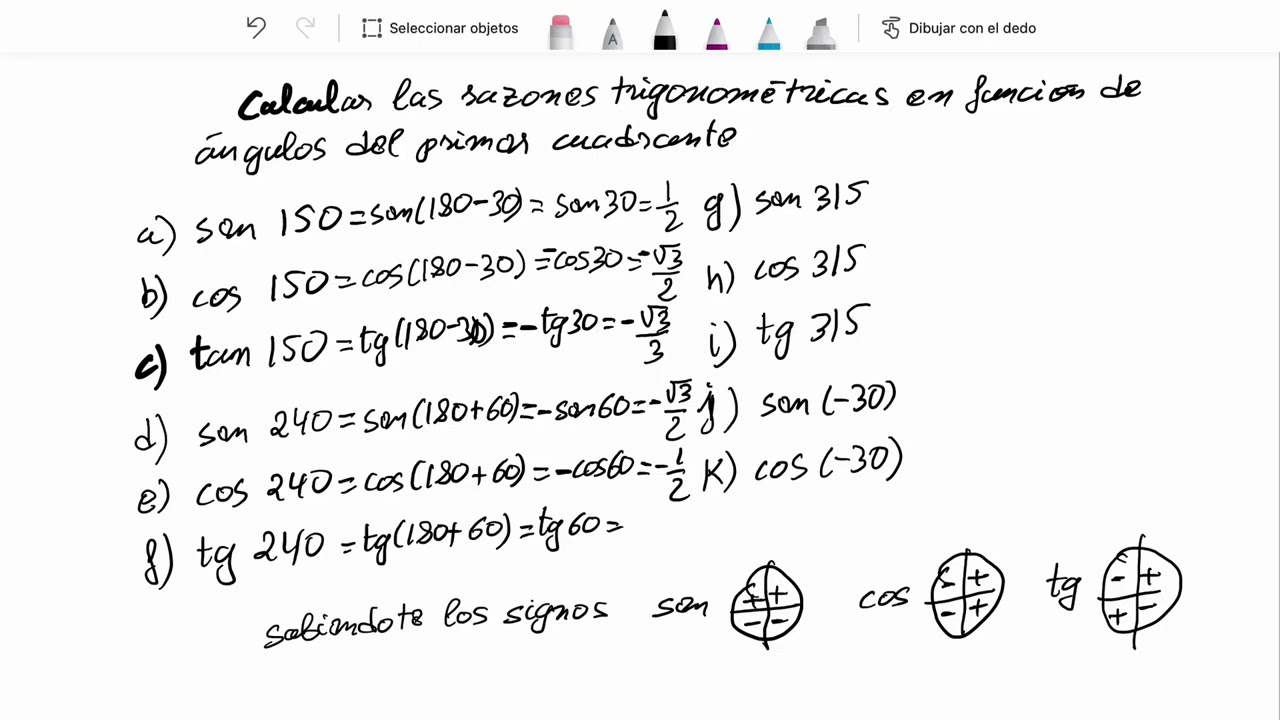 Seleccionar objetos
A
Dibujar con el dedo
Calcular las razones trigonométricas en funcion de
ángulos del primer cuadrante
a) sen 150 = sen(180-30) = sen30 = 1/2 g) sen 315
b) cos 150 = cos(180-30) = -cos30 = -√3/2 h) cos 315
c) tan 150 = tg(180-30) = -tg30 = -√3/3 i) tg 315
d) sen 240 = sen(180+60) = -sen60 = -√3/2 j) sen (-30)
e) cos 240 = cos(180+60) = -cos60 = -1/2 K) cos (-30)
f) tg 240 = tg(180+60) = tg60 =
sabiendote los signos sen + + - - cos - + - + tg - + + -